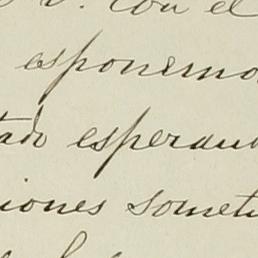 V. con el
esponemo
tado esperand
iones someti